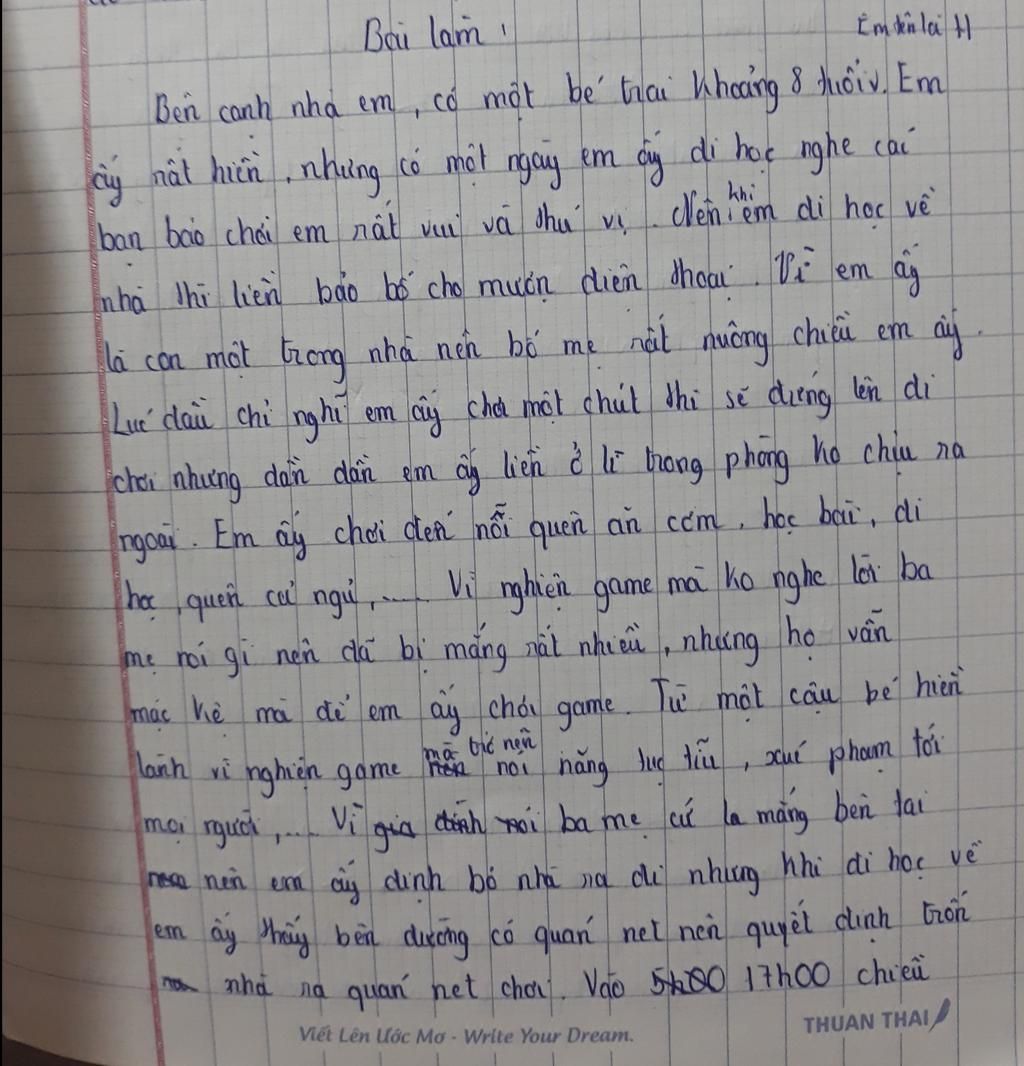 Bài làm Em tên là H
Bên cạnh nhà em, có một bé trai khoảng 8 tuổi. Em
ấy rất hiền, nhưng có một ngày em ấy đi học nghe các
bạn bảo chơi em rất vui và thú vị. Nên khi em đi học về
nhà thì liền bảo bố cho mượn điện thoại. Vì em ấy
là con một trong nhà nên bố mẹ rất nuông chiều em ấy.
Lúc đầu chỉ nghĩ em ấy chơi một chút thì sẽ đứng lên đi
chơi nhưng dần dần em ấy liền ở lì trong phòng ko chịu ra
ngoài. Em ấy chơi đến nỗi quên ăn cơm, học bài, đi
học, quên cả ngủ,..... Vì nghiện game mà ko nghe lời ba
mẹ nói gì nên đã bị mắng rất nhiều, nhưng họ vẫn
mặc kệ mà để em ấy chơi game. Từ một cậu bé hiền
lành vì nghiện game mà trở nên nói năng tục tĩu, xúc phạm tới
mọi người,.... Vì gia đình nói ba mẹ cứ la mắng bên tai
nên em ấy định bỏ nhà ra đi nhưng khi đi học về
em ấy thấy bên đường có quán net nên quyết định trốn
nhà ra quán net chơi. Vào 5h00 17h00 chiều
Viết Lên Ước Mơ - Write Your Dream.
THUAN THAI